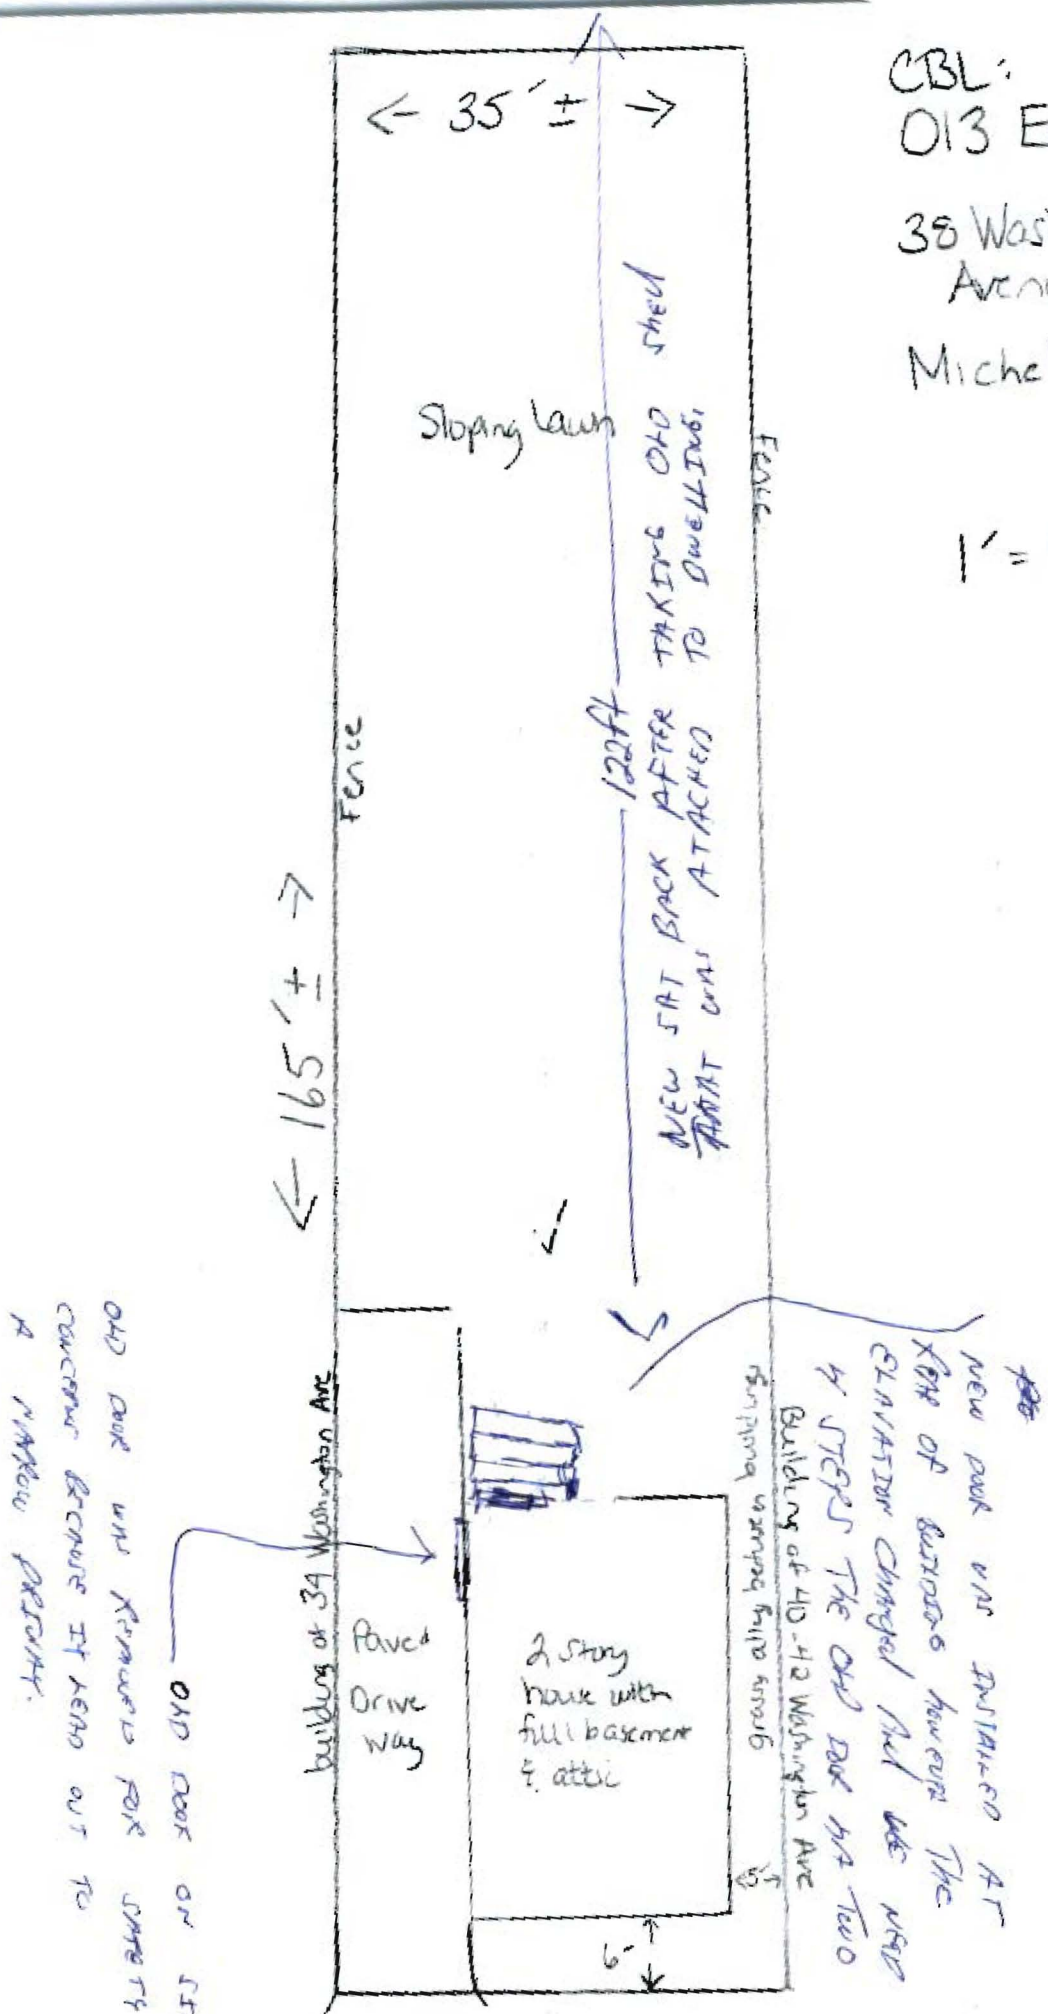 ← 35'± →
CBL:
013 E
38 Was
Aven
Miche
1' =
Sloping Lawn
Fence
Fence
122ft
NEW SAT BACK AFTER TAKING OLD shed
THAT WAS ATACHED TO DWELLING.
← 165'± →
building at 34 Washington Ave
Paved
Drive
way
2 Story
house with
full basement
& attic
grass alley between buildings
Building at 40-42 Washington Ave
5'
6'
NEW DOOR WAS INSTALLED AT
REAR OF BUILDING however The
ELAVATION Changed And WE NEED
4 STEPS THE OLD DOR HA TWO
OLD DOOR ON SI
OLD DOOR WAS REMOVED FOR SAFETY
CONCERNS BECAUSE IT LEAD OUT TO
A NARROW DRIVWAY.